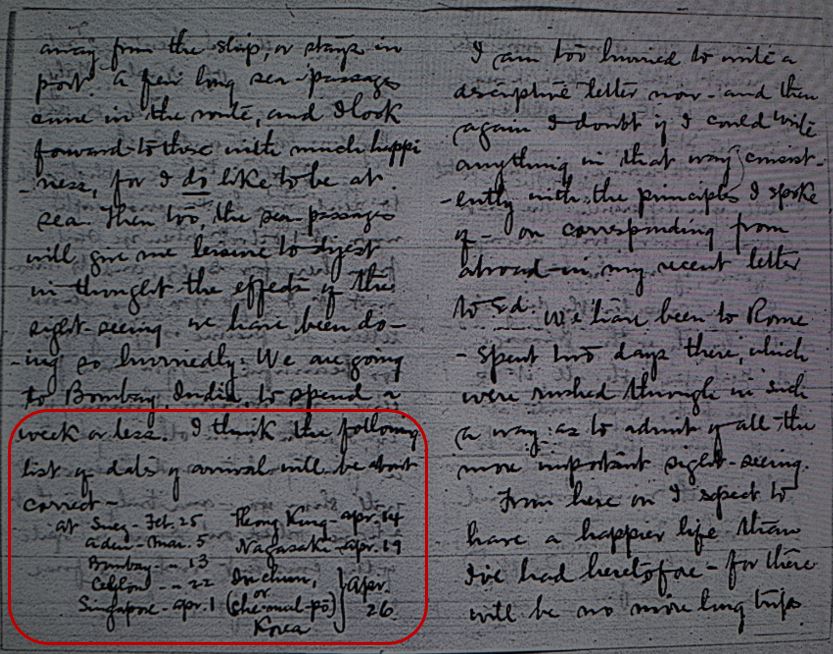 away from the ship, or stays in
port. A few long sea-passages
come in the route, and I look
forward to these with much happi
-ness, for I do like to be at
sea. Then too, the sea-passages
will give me leisure to digest
in thought the effects of the
sight-seeing we have been do-
-ing so hurriedly. We are going
to Bombay, India, to spend a
week or less. I think the following
list of dates of arrival will be about
correct-
at Suez - Feb. 25
Aden - Mar. 5
Bombay - " 13
Ceylon - " 22
Singapore - Apr. 1
Hong Kong - Apr. 14
Nagasaki - Apr. 19
In-chiun,
or
(Che-mul-po)
Korea
} Apr.
26.
I am too hurried to write a
descriptive letter now - and then
again I doubt if I could write
anything in that way consist-
-ently with the principles I spoke
of - on corresponding from
abroad - in my recent letter
to Ed. We have been to Rome
- spent two days there, which
were rushed through in such
a way as to admit of all the
more important sight-seeing.
From here on I expect to
have a happier life than
I've had heretofore - for there
will be no more long trips